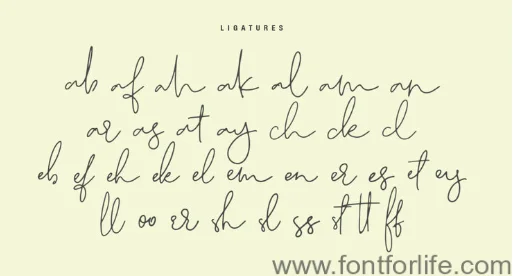 LIGATURES
ab af ah ak al am an
ar as at ay ch ck cl
eb ef eh ek el em en er es et ey
ll oo er sh sl ss st tt ff
www.fontforlife.com